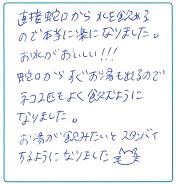 直接蛇口から水を飲める
ので本当に楽になりました。
お水がおいしい!!!
蛇口からすぐお湯も出るので
ネコ2匹もよく飲むように
なりました。
お湯が飲みたいとスタンバイ
するようになりました